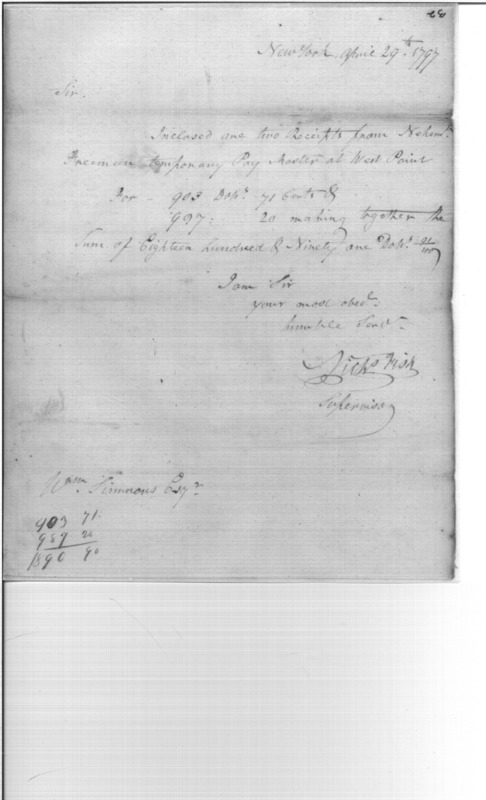 New York April 29th 1797
Sir.
Inclosed are two Receipts from Nehemh
Freeman temporary Pay Master at West Point
For - 903 Dolrs 71 Cents &
987: 20 making together the
Sum of Eighteen hundred & Ninety one Dolrs 91/100
I am Sir
your most obedt
humble Servt
Nichs Fish
Supervisor
Wm Simmons Esqr
903 71.
987 20
1890 90